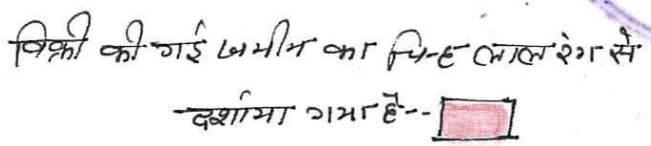 विक्री की गई जमीन का चिन्ह लाल रंग से
दर्शाया गया है--